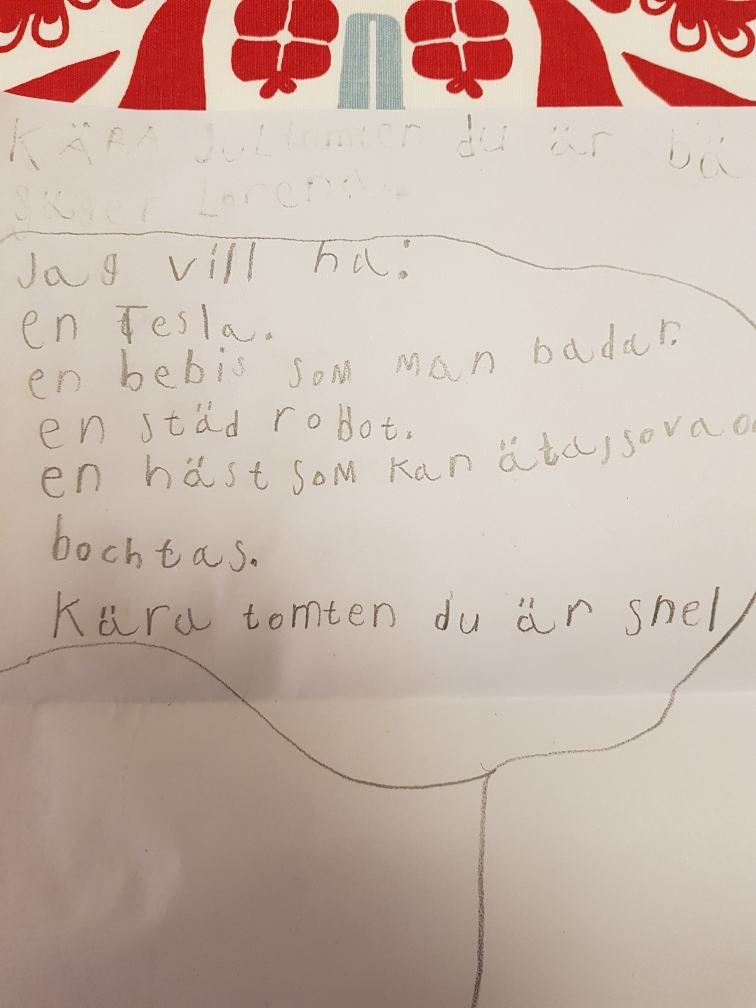 KÄRA JULtomten du är bä
Jag vill ha:
en Tesla.
en bebis som man badar.
en städ robot.
en häst som kan äta, sova o
bochtas.
Kära tomten du är snel